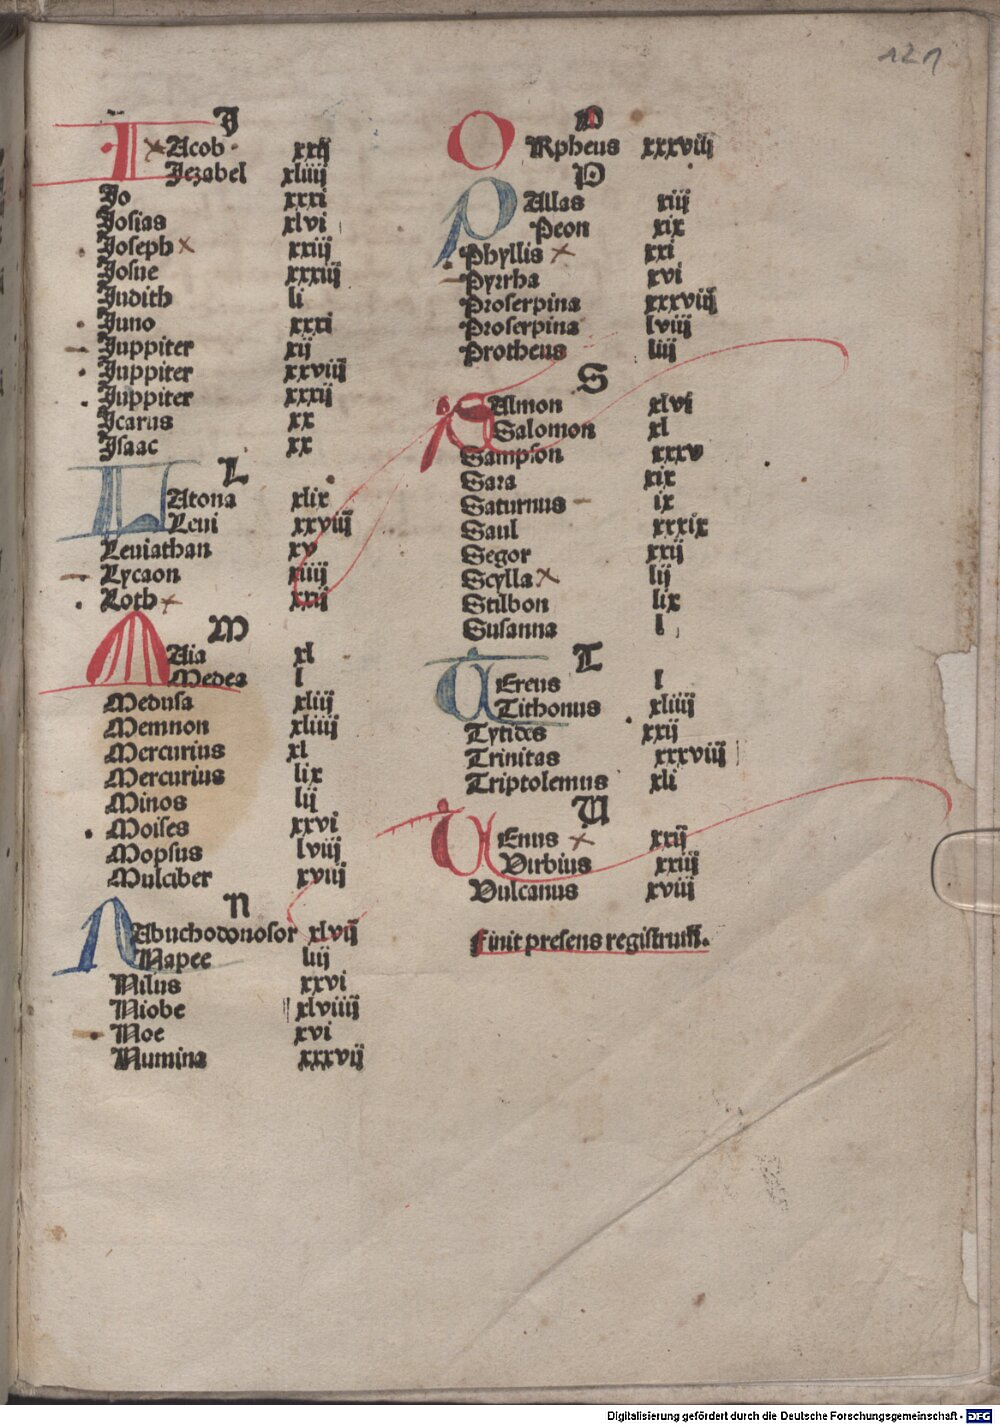 121
J
IAcob xxij
Jezabel xliiij
Jo xxxi
Josias xlvi
Joseph xxiij
Josue xxxiij
Judith li
Juno xxxi
Juppiter xij
Juppiter xxviij
Juppiter xxxij
Icarus xx
Isaac xx
L
LAtona xlix
Leui xxviij
Leuiathan xv
Lycaon xiiij
Loth xxij
M
MAia xl
Medea l
Medusa xliij
Memnon xliiij
Mercurius xl
Mercurius lix
Minos lij
Moises xxvi
Mopsus lviij
Mulciber xviij
N
NAbuchodonosor xlvij
Napee liij
Nilus xxvi
Niobe xlviiij
Noe xvi
Numina xxxvij
O
ORpheus xxxviij
P
PAllas xiij
Peon xix
Phyllis xxi
Pyrrha xvi
Proserpina xxxviij
Proserpina lviij
Protheus liij
S
SAlmon xlvi
Salomon xl
Sampson xxxv
Sara xix
Saturnus ix
Saul xxxix
Segor xxij
Scylla lij
Stilbon lix
Susanna l
T
TEreus l
Tithonus xliiij
Tytides xxij
Trinitas xxxviij
Triptolemus xli
U
UEnus xxij
Virbius xxiij
Vulcanus xviij
Finit presens registrum.
Digitalisierung gefördert durch die Deutsche Forschungsgemeinschaft - DFG